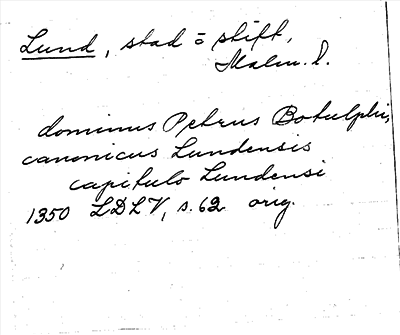 Lund, stad o stift,
Malm. l.
dominus Petrus Botulphi,
canonicus Lundensis
capitulo Lundensi
1350 LDLV, s. 62 orig.